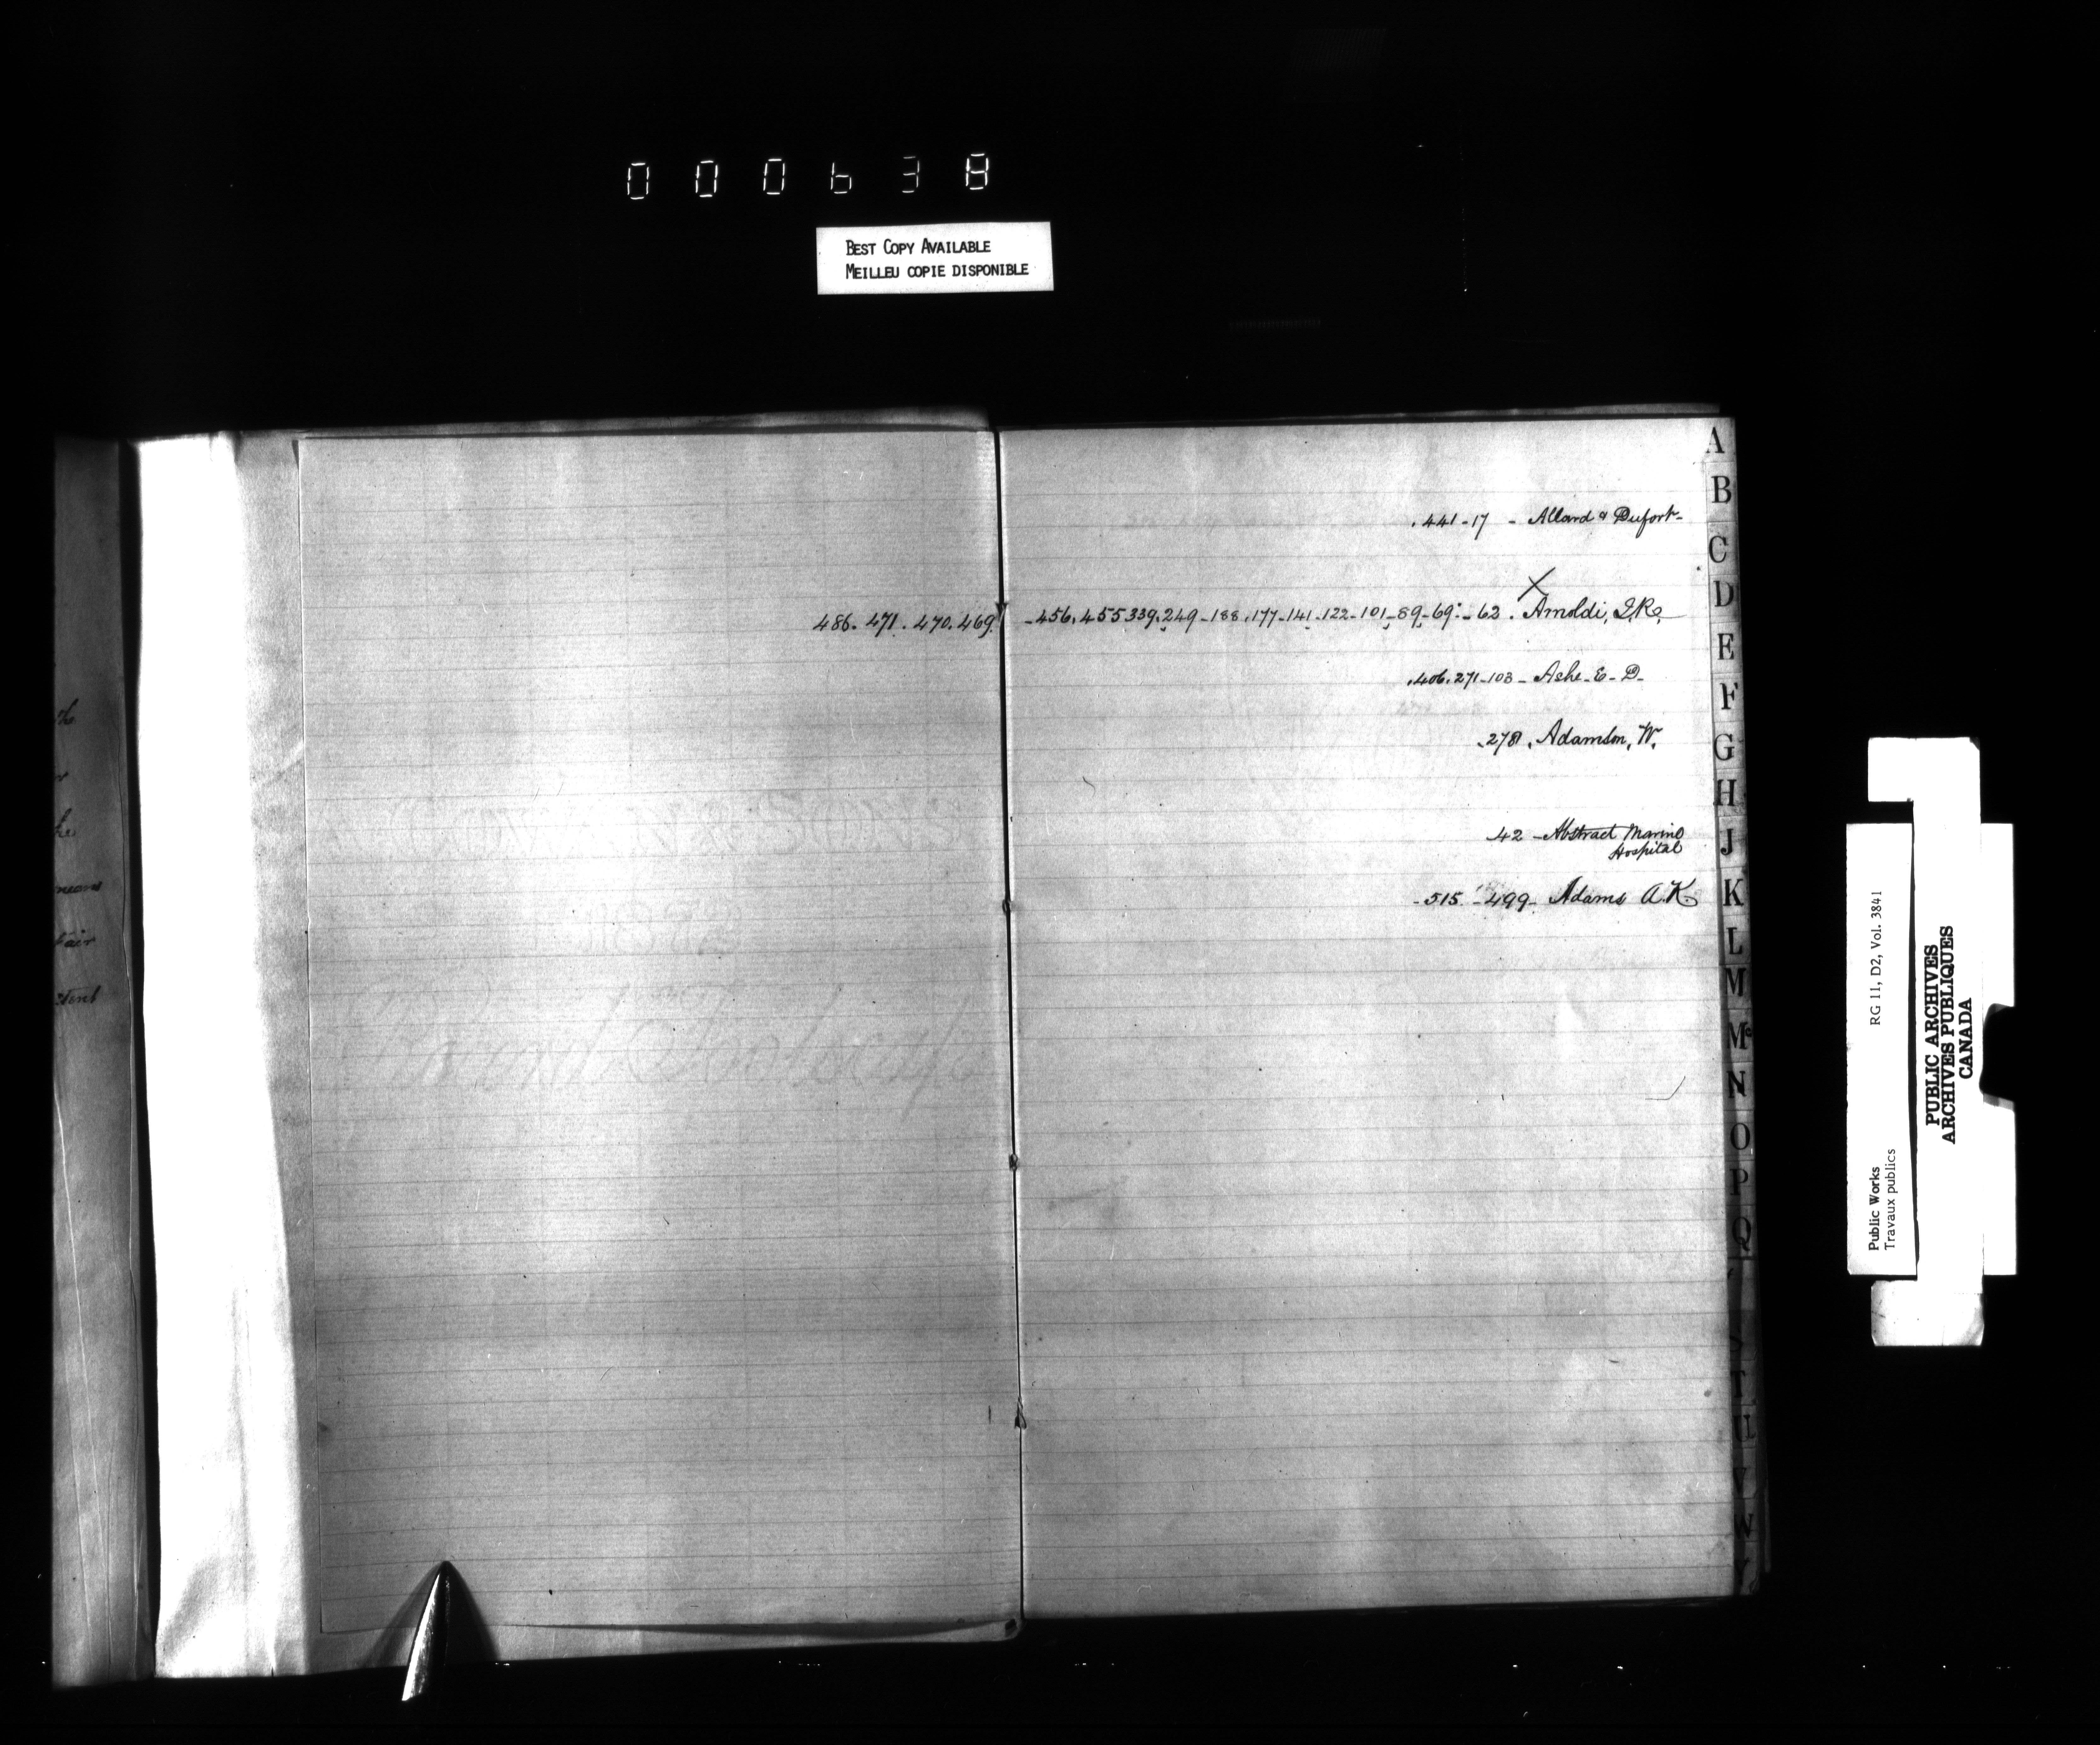 000638
BEST COPY AVAILABLE
MEILLEU COPIE DISPONIBLE
.441-17 - Allard & Dufort-
X
486. 471. 470. 469. -456. 455 339. 249-188. 177-141-122-101-89-69.-62. Arnoldi, J.R.
.406. 271-103- Ashe-E-D-
.278. Adamson, W.
42 -Abstract Marine
Hospital
-515. -499- Adams A.K.
he
means
fair
A
B
C
D
E
F
G
H
J
K
L
M
Mc
N
O
P
Q
T
U
V
W
Y
Public Works RG 11, D2, Vol. 3841
Travaux publics
PUBLIC ARCHIVES
ARCHIVES PUBLIQUES
CANADA